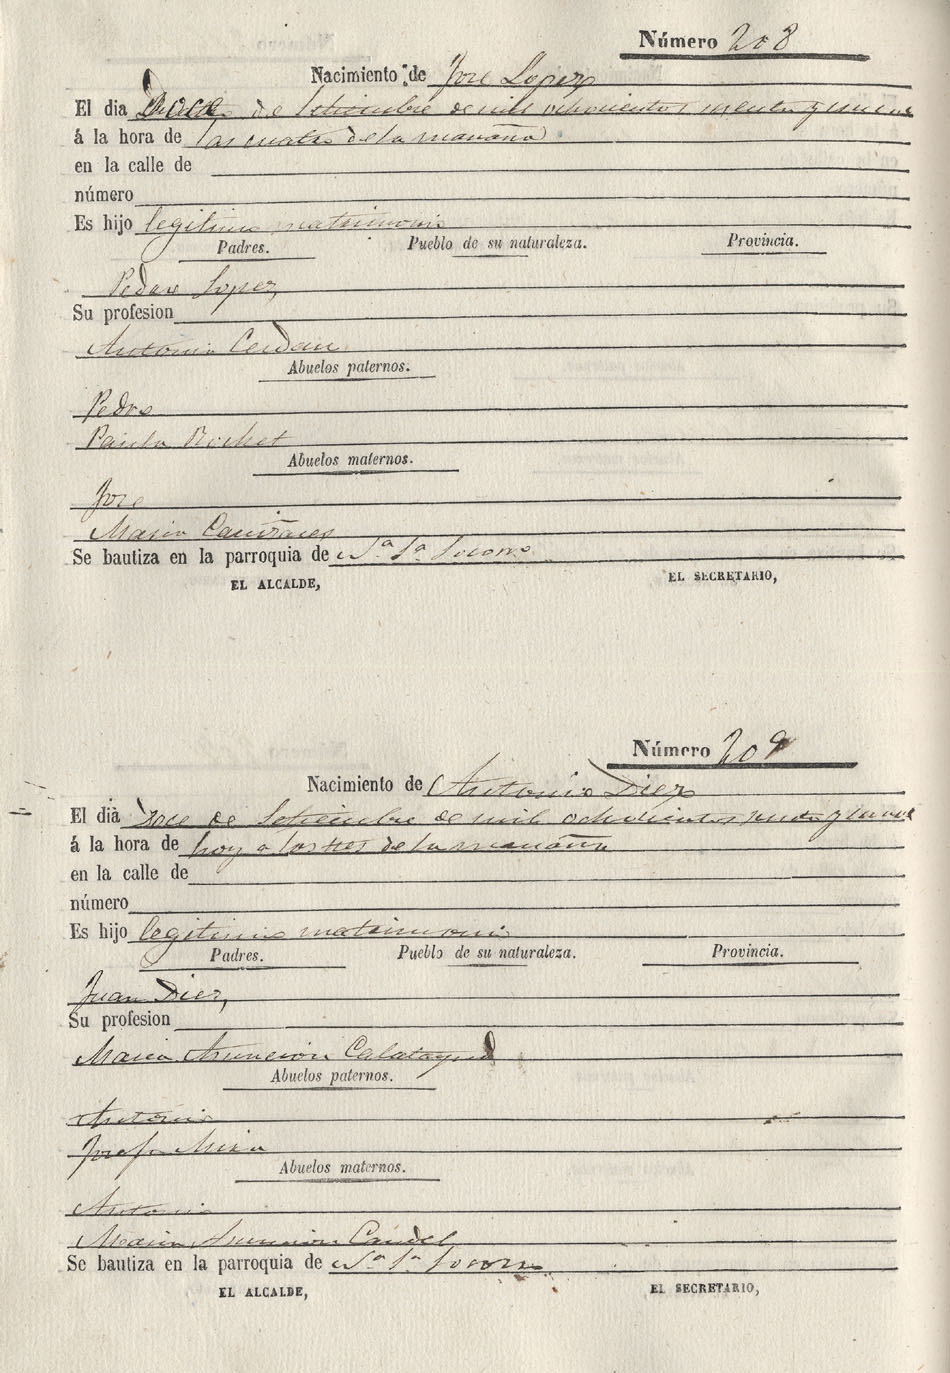 Número 208
Nacimiento de José Lopez
El dia Doce de Setiembre de mil ochocientos sesenta y nueve
á la hora de las cuatro de la mañana
en la calle de
número
Es hijo legitimo matrimonio
Padres. Pueblo de su naturaleza. Provincia.
Pedro Lopez,
Su profesion
Antonia Cerdan
Abuelos paternos.
Pedro
Paula
Abuelos maternos.
José
Maria
Se bautiza en la parroquia de Nª Sª Socorro
EL ALCALDE, EL SECRETARIO,
Número 209
Nacimiento de Antonio Diez
El dia Doce de Setiembre de mil ochocientos sesenta y nueve
á la hora de hoy a las tres de la mañana
en la calle de
número
Es hijo legitimo matrimonio
Padres. Pueblo de su naturaleza. Provincia.
Juan Diez,
Su profesion
Maria Asuncion Calatayud
Abuelos paternos.
Antonio
Josefa Mira
Abuelos maternos.
Antonio
Maria Asuncion Candel
Se bautiza en la parroquia de Nª Sª Socorro
EL ALCALDE, EL SECRETARIO,